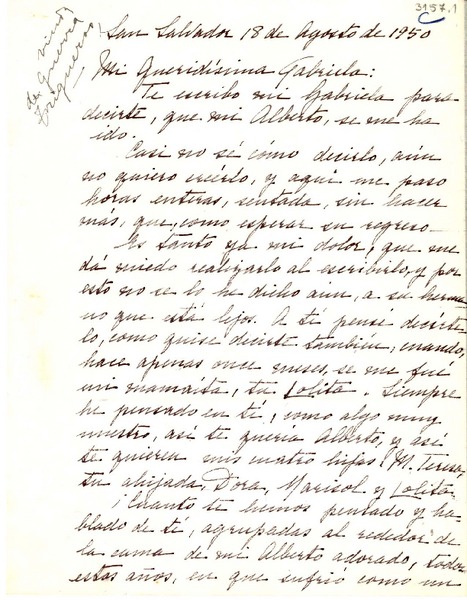 3157.1
viuda
de Guerra
Trigueros
San Salvador 18 de Agosto de 1950
Mi Queridísima Gabriela:
Te escribo mi Gabriela para
decirte, que mi Alberto, se me ha
ido.
Casi no sé cómo decirlo, aún
no quiero creérlo, y aquí me paso
horas enteras, sentada, sin hacer
más, que, como esperar su regreso.
Es tanto ya mi dolor, que me
dá miedo realizarlo al escribirlo, y por
esto no se lo he dicho aún, a su herma
no que está lejos. A tí pensé decírte
lo, como quise decirte tambien, cuando,
hace apenas once meses, se me fué
mi mamaíta, tu Lolita. Siempre
he pensado en tí, como algo muy
nuestro, así te queria Alberto, y así
te quieren mis cuatro hijas, M. Teresa,
tu ahijada, Dora, Marisol y Lolita.
¡Cuanto te hemos pensado y ha
blado de tí, agrupadas al rededor de
la cama de mi Alberto adorado, todos
estos años, en que sufrió como un